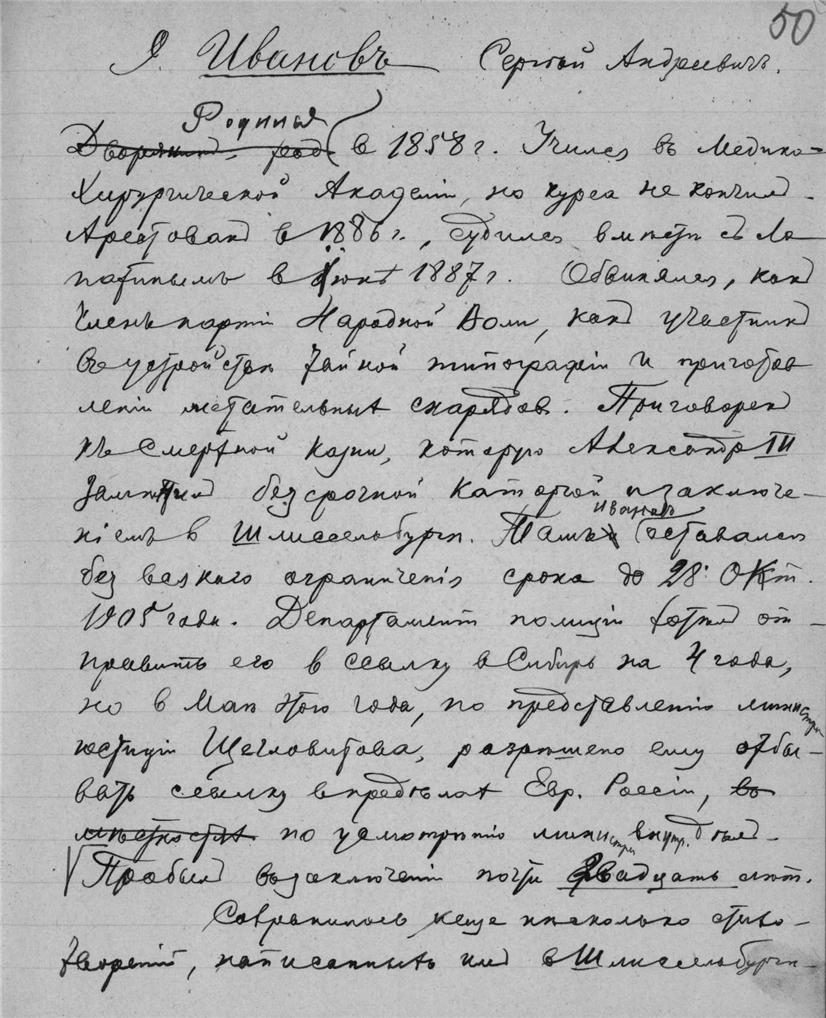 50
Я. Ивановъ Сергѣй Андреевичъ.
Родился
Дворянинъ, род. в 1858 г. Учился въ Медико-
Хирургической Академіи, но курса не кончилъ.
Арестованъ в 1886 г., судился вмѣстѣ съ Ло
патинымъ в Іюнѣ 1887 г. Обвинялся, какъ
членъ партіи Народной Воли, какъ участникъ
въ устройствѣ тайной типографіи и приготов
леніи метательных снарядов. Приговоренъ
къ смертной казни, которую Александръ III
замѣнилъ безсрочной каторгой и заключе-
ніемъ в Шлиссельбургѣ. Тамъ оставался
Ивановъ
без всякаго ограниченія срока до 28 Окт.
1905 года. Департаментъ полиціи хотѣлъ от-
править его в ссылку в Сибирь на 4 года,
но в Маѣ этого года, по представленію министра
юстиціи Щегловитова, разрѣшено ему отбы-
вать ссылку в предѣлах Евр. Россіи, въ
мѣстностях по усмотрѣнію министра внутр. дѣлъ.
Пробылъ въ заключеніи почти двадцать лѣт.
Сохранилось еще нѣсколько стихо-
твореній, написанныхъ имъ в Шлиссельбургѣ